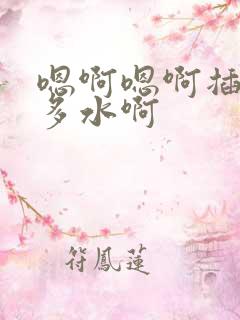 嗯啊嗯啊插
多水啊
符鳳蓮